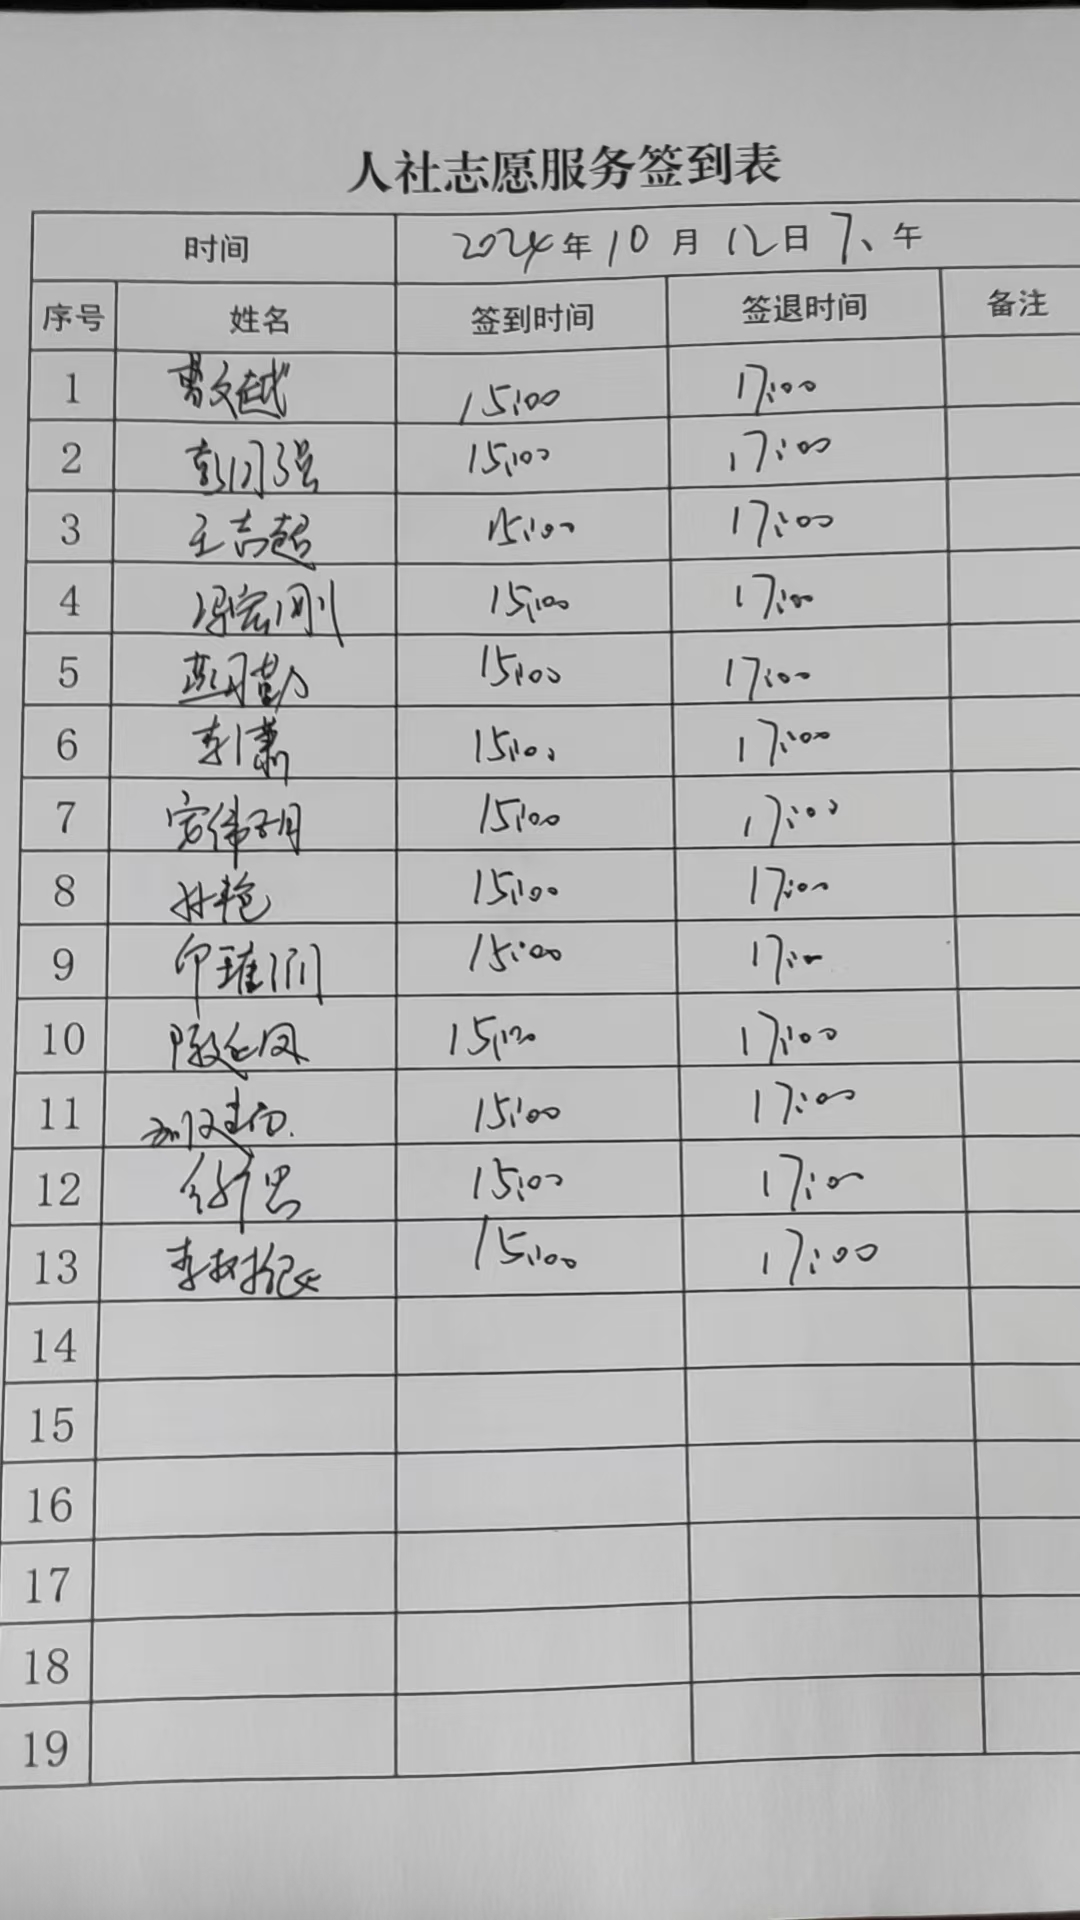 人社志愿服务签到表
时间 2024年10月12日下午
序号 姓名 签到时间 签退时间 备注
1 曹文越 15:00 17:00
2 15:00 17:00
3 王志超 15:00 17:00
4 冯宏刚 15:00 17:00
5 15:00 17:00
6 李潇 15:00 17:00
7 15:00 17:00
8 孙艳 15:00 17:00
9 15:00 17:00
10 15:00 17:00
11 15:00 17:00
12 15:00 17:00
13 15:00 17:00
14
15
16
17
18
19